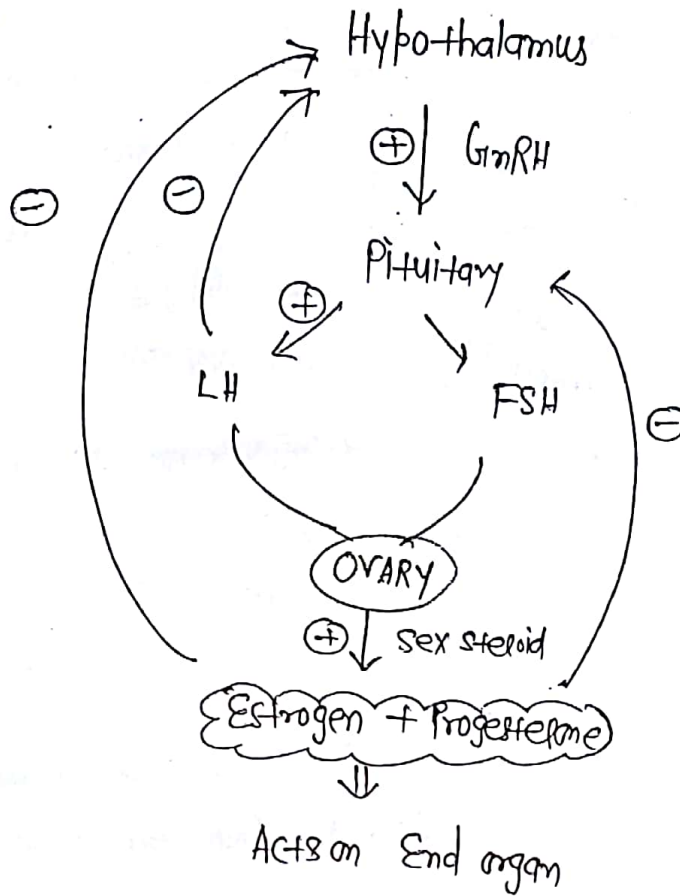 Hypothalamus
⊕ GnRH
Pituitary
⊕
⊖ ⊖
LH FSH
⊖
OVARY
⊕ sex steroid
Estrogen + Progesterone
Acts on End organ